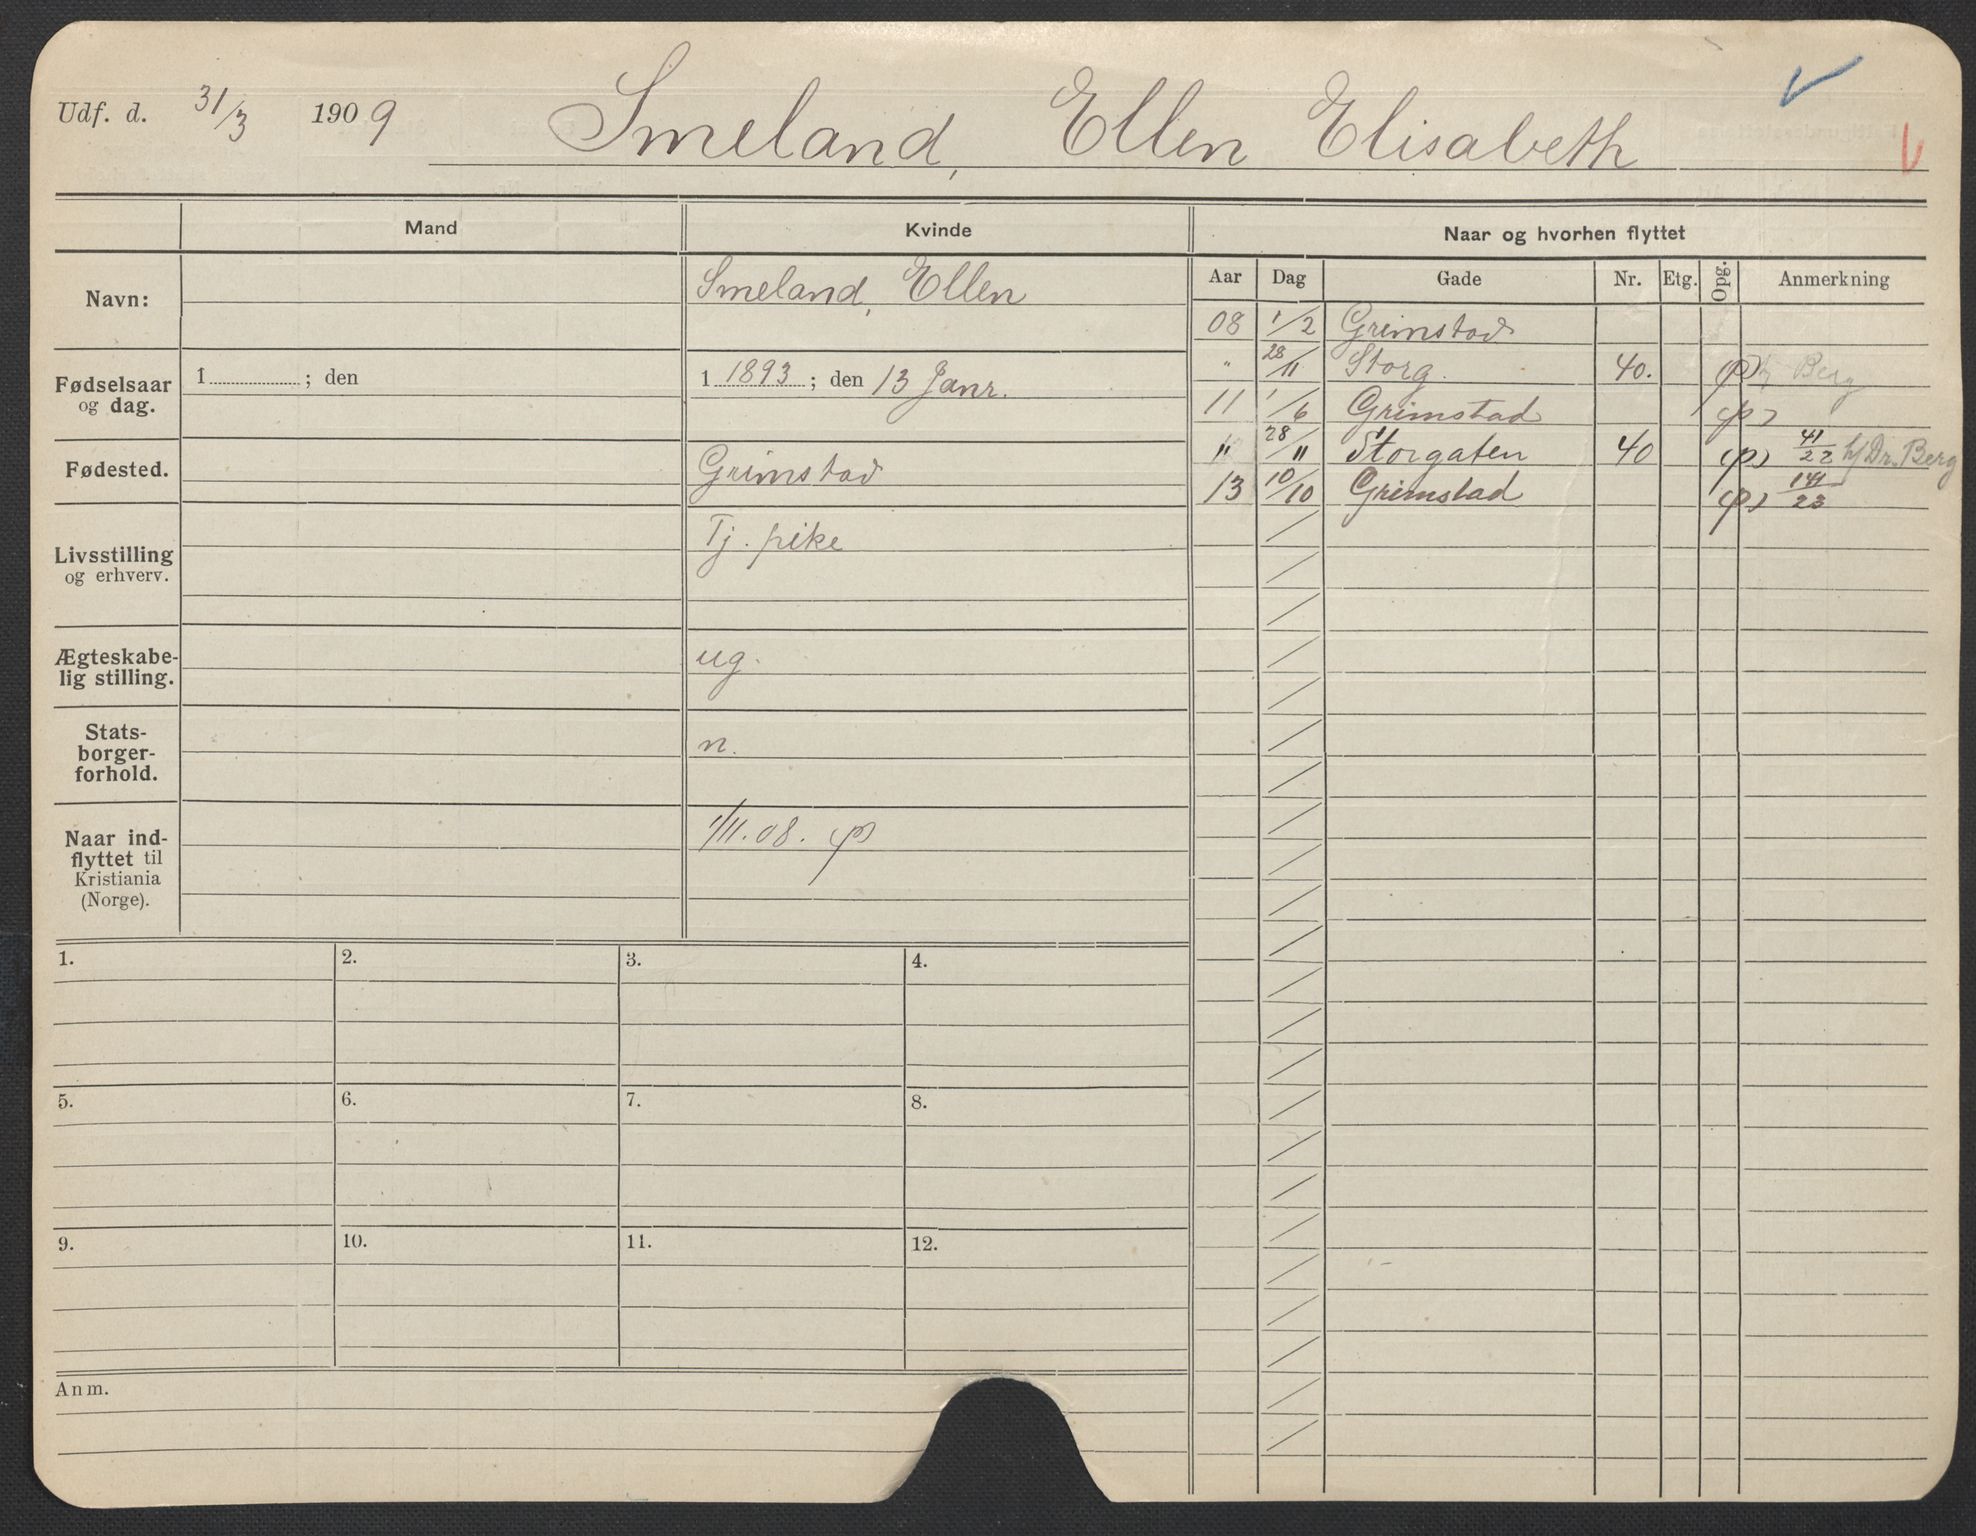 Udf. d. 31/3 1909 Smeland, Ellen Elisabeth
Mand Kvinde Naar og hvorhen flyttet
Aar Dag Gade Nr. Etg. Opg. Anmerkning
Navn: Smeland, Ellen
08 1/2 Grimstad
" 28/11 Storg. 40. Berg
Fødselsaar
og dag.
1 ; den
1 1893 ; den 13 Janr.
11 1/6 Grimstad
" 28/11 Storgaten 40 41/22 h/Dr. Berg
Fødested. Grimstad
13 10/10 Grimstad
Livsstilling
og erhverv.
Tj. pike
Ægteskabe-
lig stilling.
ug.
Stats-
borger-
forhold.
n.
Naar ind-
flyttet til
Kristiania
(Norge).
1/11.08.
1. 2. 3. 4.
5. 6. 7. 8.
9. 10. 11. 12.
Anm.